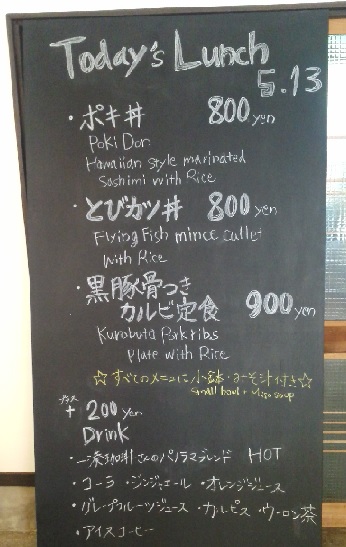 Today's Lunch
5.13
・ポキ丼 800 yen
Poki Don
Hawaiian style marinated
Sashimi with Rice
・とびカツ丼 800 yen
Flying Fish mince cutlet
with Rice
・黒豚骨つき
カルビ定食 900 yen
Kurobuta Pork ribs
Plate with Rice
☆すべてのメニューに小鉢・みそ汁付き☆
small bowl + Miso soup
プラス
+ 200 yen
Drink
・一湊珈琲さんのパノラマブレンド HOT
・コーラ ・ジンジャエール ・オレンジジュース
・グレープフルーツジュース ・カルピス ・ウーロン茶
・アイスコーヒー